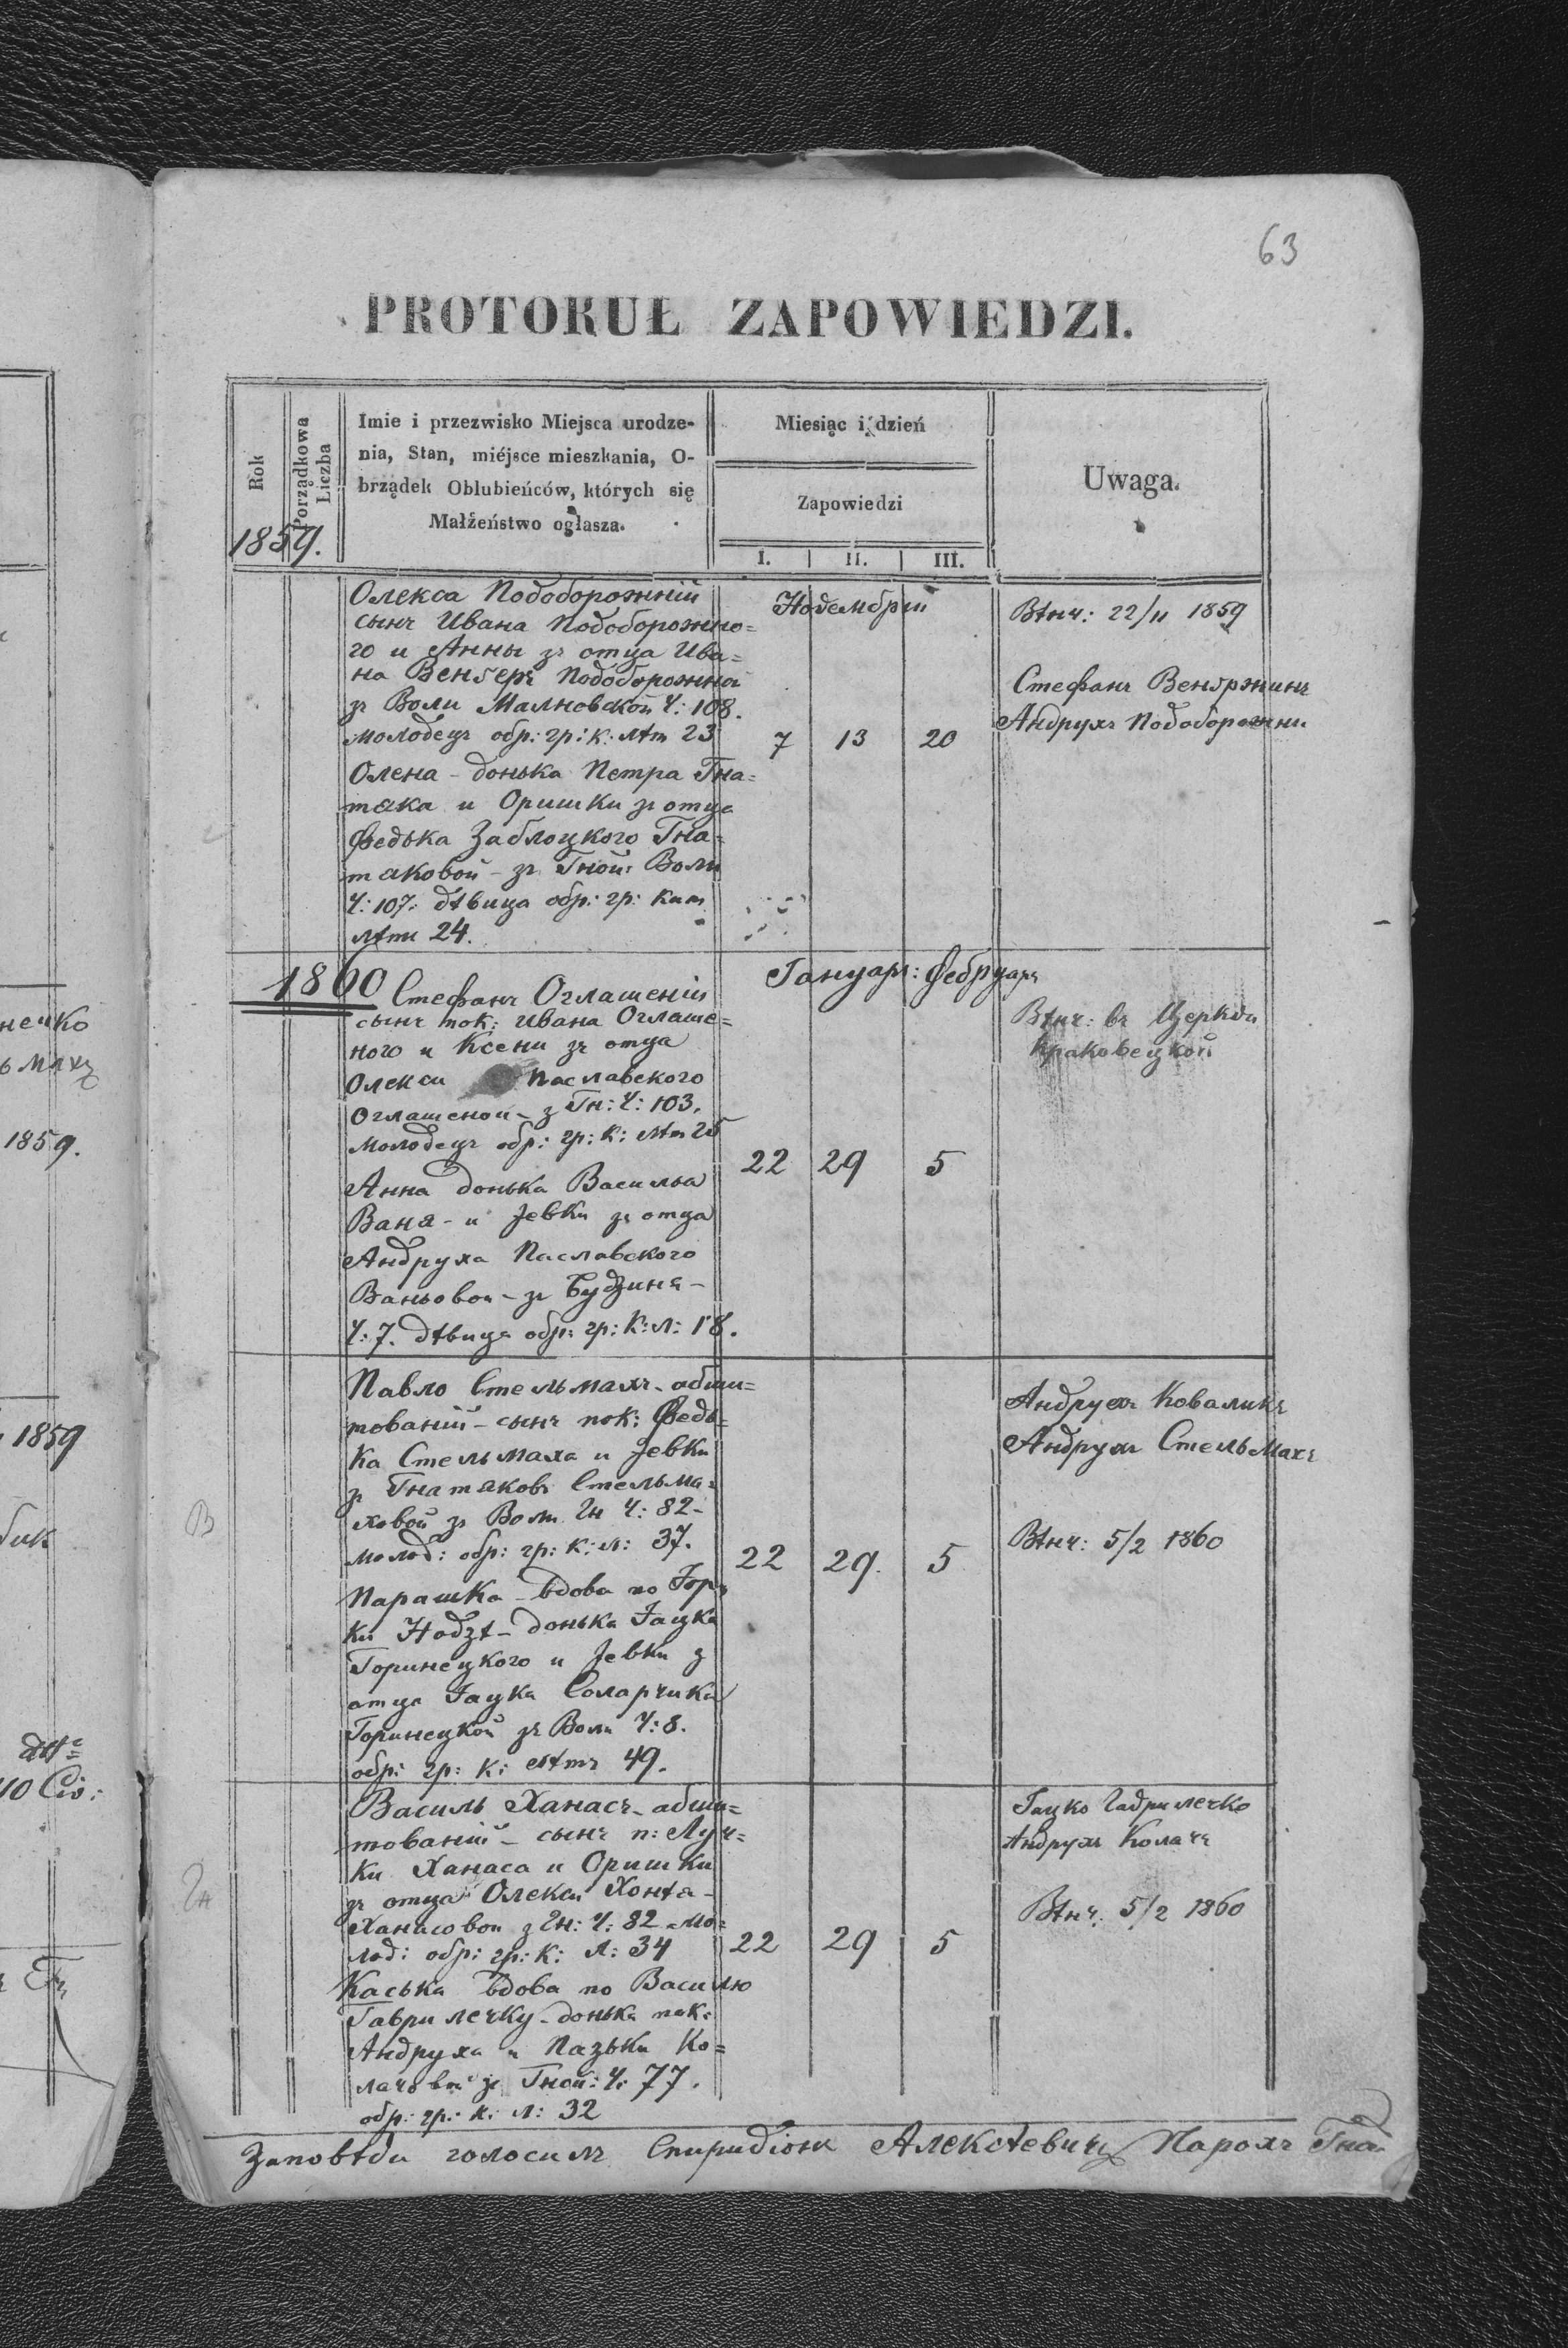 63
PROTOKUŁ ZAPOWIEDZI.
Rok
Porządkowa
Liczba
Imie i przezwisko Miejsca urodze-
nia, Stan, miéjsce mieszkania, O-
brządek Oblubieńców, których się
Małżeństwo ogłasza.
Miesiąc i dzień
Zapowiedzi
I. II. III.
Uwaga.
1859.
Олекса Подоборожній
сынъ Ивана Подоборожно=
го и Анны зъ отца Ива=
на Венгеръ Подоборожной
зъ Воли Малновской Ч: 108.
молодецъ обр: гр: к: лѣт 23
Олена - донька Петра Гна=
така и Оришки зъ отца
Федька Заблоцкого Гна=
таковой - зъ Гной: Воли
Ч: 107. дѣвица обр: гр: кат
лѣта 24.
Новембрій
7 13 20
Вѣнч: 22/11 1859
Стефанъ Венгржинъ
Андрухъ Подоборожни
1860
Стефанъ Оглашеній
сынъ пок: Ивана Оглаше=
ного и Ксени зъ отца
Олекси Паславского
Оглашеной - з Гн: Ч: 103.
молодецъ обр: гр: к: лѣт 25
Анна донька Василья
Ваня - и Јевки зъ отца
Андруха Паславского
Ваньовои - зъ Будзиня -
Ч: 7. дѣвица обр: гр: к: л: 18.
Јануаръ: Фебруаръ
22 29 5
Вѣнч: въ Церкви
Краковецкой
Павло Стельмахъ - абши=
тованій - сынъ пок: Федь=
ка Стельмаха и Јевки
зъ Гнатяковъ Стельма=
ховой зъ Воли Гн Ч: 82 -
молод: обр: гр: к: л: 37.
Парашка - вдова по Јор=
ки Нодзѣ - донька Јацка
Горинецкого и Јевки з
отца Јацка Соларчика
Горинецкой зъ Воли Ч: 8.
обр: гр: к: лѣтъ 49.
22 29. 5
Андрухъ Коваликъ
Андрухъ Стельмахъ
Вѣнч: 5/2 1860
В
Василь Ханасъ - абши=
тованій - сынъ п: Луч=
ки Ханаса и Оришки
зъ отца Олекси Хонтя -
Ханасовои з Гн: Ч: 82 - мо=
лод: обр: гр: к: л: 34
Каська вдова по Василю
Гаврилечку - донька пок:
Андруха и Пазьки Ко=
лачовой зъ Гной: Ч: 77.
обр: гр: к: л: 32
22 29 5
Јацко Гаврилечко
Андрухъ Колачъ
Вѣнч: 5/2 1860
Гн
Заповѣди голосилъ Спиридіонъ Алексѣевичъ Парохъ Гной
1859.
1859